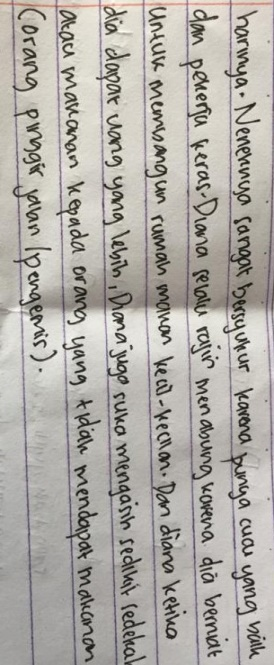 harinya. Neneknya sangat bersyukur karena punya cucu yang baik
dan pekerja keras. Diana selalu rajin menabung karena dia berniat
untuk membangun rumah makan kecil-kecilan. Dan diana ketika
dia dapat uang yang lebih, Diana juga suka mengasih sedikit sedekah
atau makanan kepada orang yang tidak mendapat makanan
(orang pinggir jalan / pengemis).